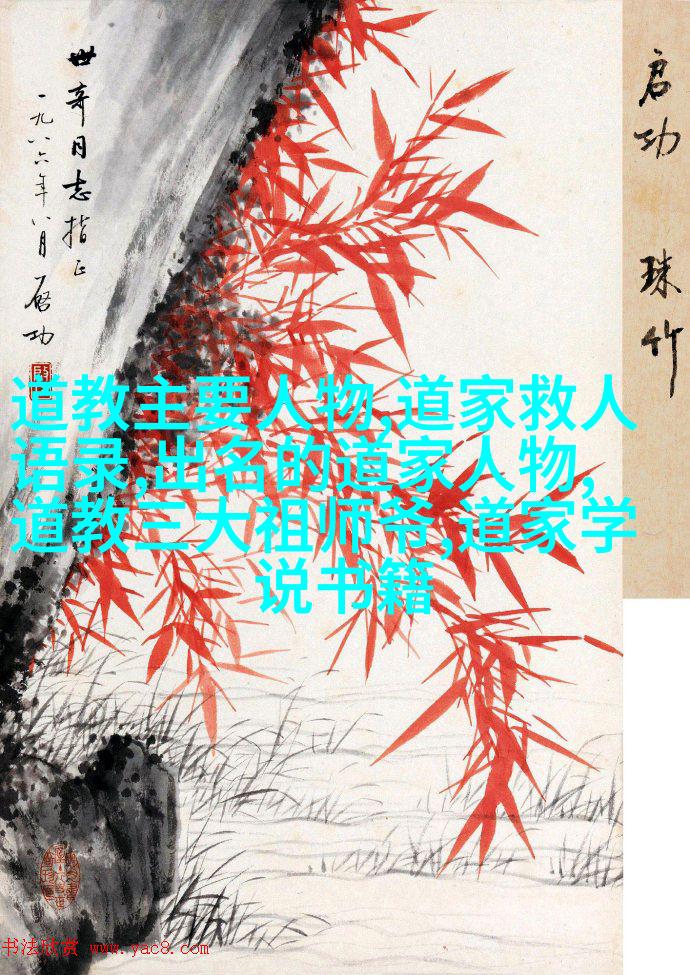 启功 珠竹
世奇同志指正
一九八六年八月启功
道教主要人物,道家救人
语录,出名的道家人物,
道教三大祖师爷,道家学
说书籍
书法欣赏 www.yac8.com